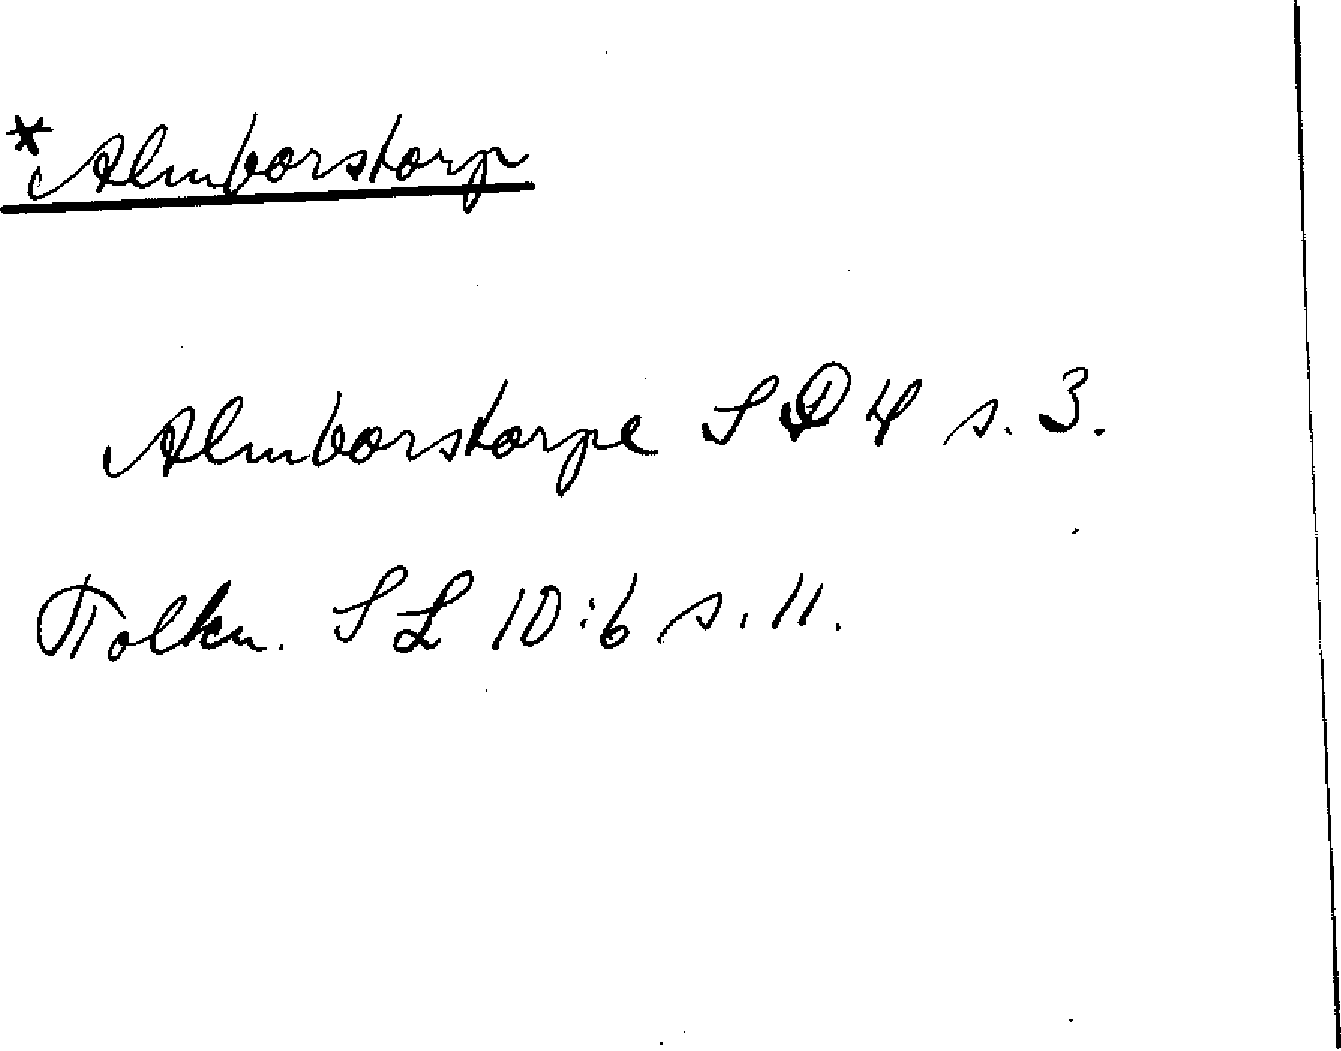 *Almborstorp
Almborstorpe SD 4 s. 3.
Tolkn. SL 10:6 s. 11.